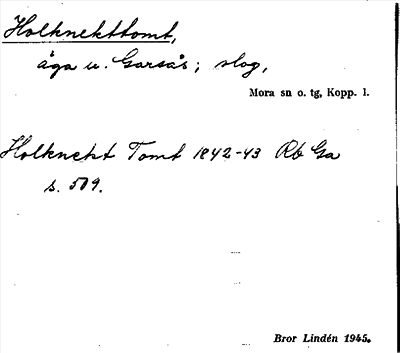 Holknekttomt,
äga u. Garsås; slog,
Mora sn o. tg, Kopp. l.
Holknekt Tomt 1842-43 Rb Ga
s. 509.
Bror Lindén 1945.